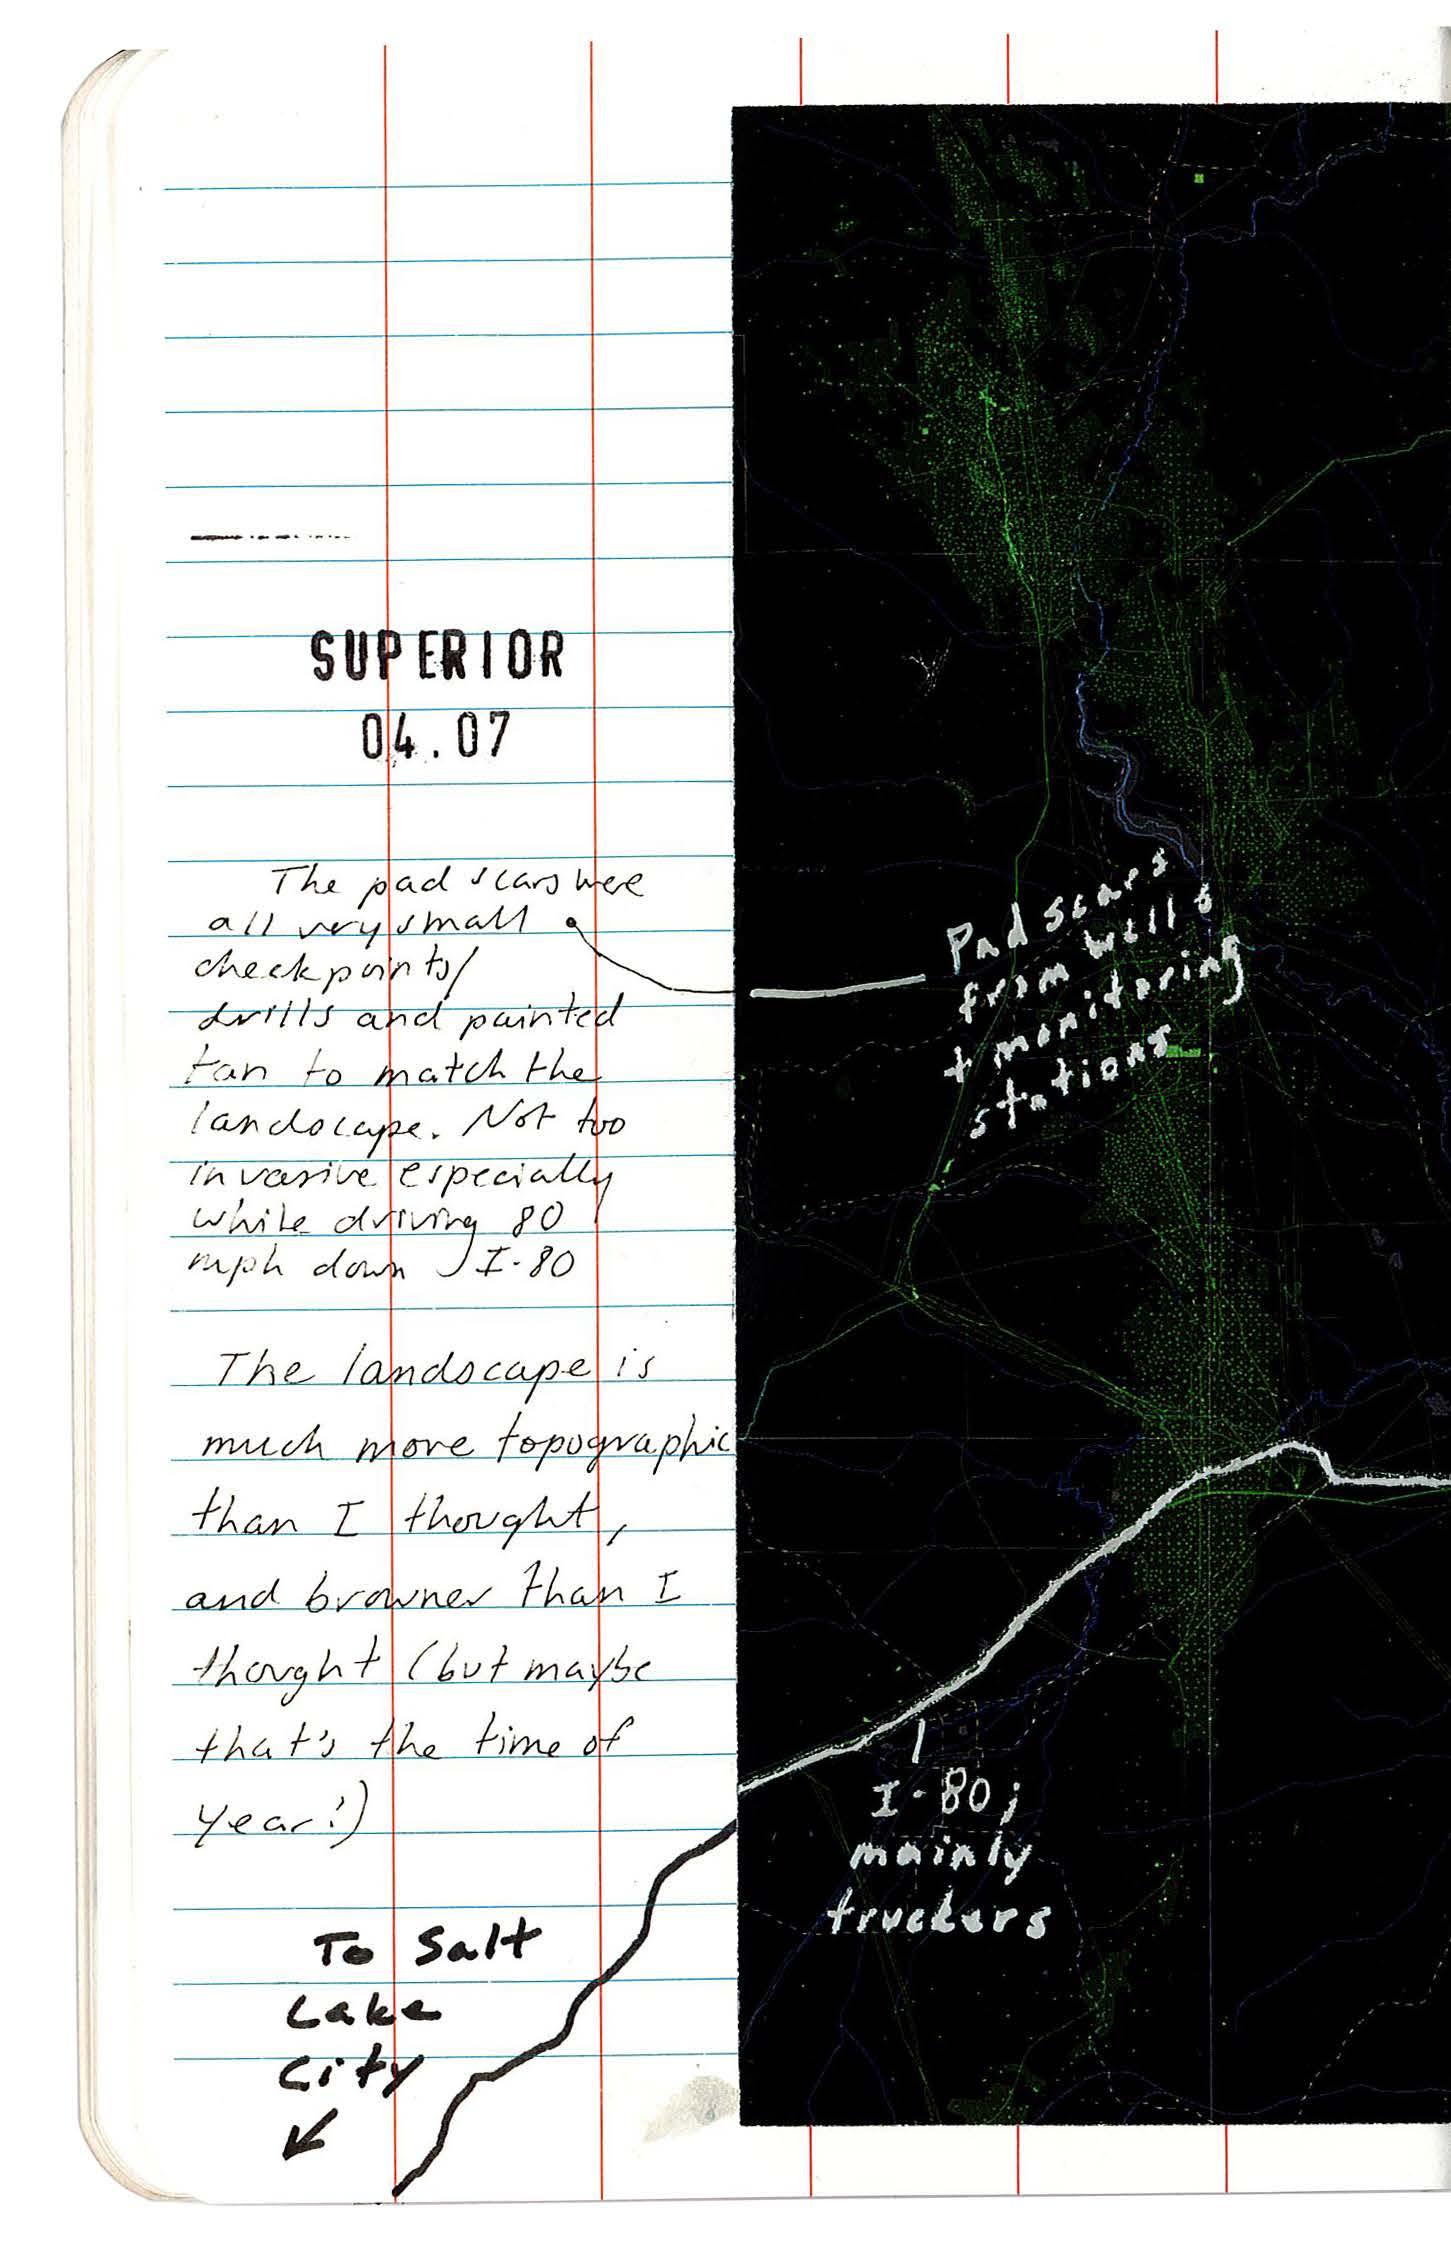 SUPERIOR
04.07
The pad scars were
all very small
checkpoints/
drills and painted
tan to match the
landscape. Not too
invasive especially
while driving 80
mph down I-80
The landscape is
much more topographic
than I thought,
and browner than I
thought (but maybe
that's the time of
year!)
To Salt
Lake
City
Pad scars
from wells
+ monitoring
stations
I-80;
mainly
truckers